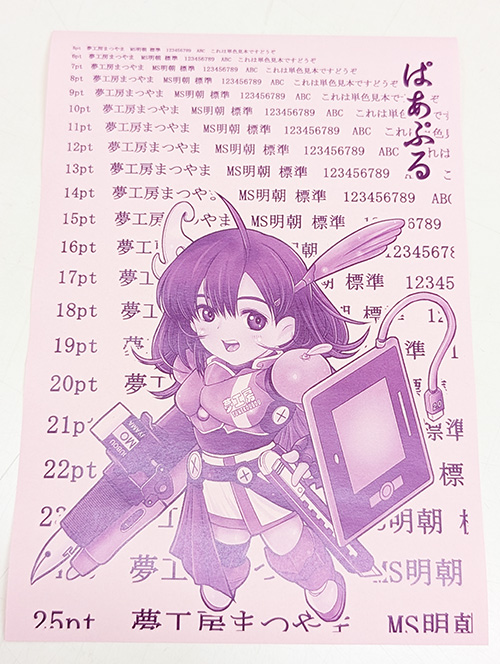 6pt 夢工房まつやま MS明朝 標準 123456789 ABC これは単色見本ですどうぞ
7pt 夢工房まつやま MS明朝 標準 123456789 ABC これは単色見本ですどうぞ
8pt 夢工房まつやま MS明朝 標準 123456789 ABC これは単色見本ですどうぞ
9pt 夢工房まつやま MS明朝 標準 123456789 ABC これは単色見本で
10pt 夢工房まつやま MS明朝 標準 123456789 ABC これは単色見
11pt 夢工房まつやま MS明朝 標準 123456789 ABC これは
12pt 夢工房まつやま MS明朝 標準 123456789 ABC これは
13pt 夢工房まつやま MS明朝 標準 123456789 ABC こ
14pt 夢工房まつや MS明朝 標準 123456789 ABC
15pt 夢工房まつやま MS明朝 標準 123456789
16pt 夢工房 MS明朝 12345678
17pt 夢工房 標準 12345
18pt 夢工房 標準 123
19pt 標準 1
20pt 夢工 標準
21pt 標準
22pt 朝 標
明朝
MS明朝
25pt 夢工房まつやま MS明朝
ぱあぷる
夢工房
MO
KIBOU
IYAMA